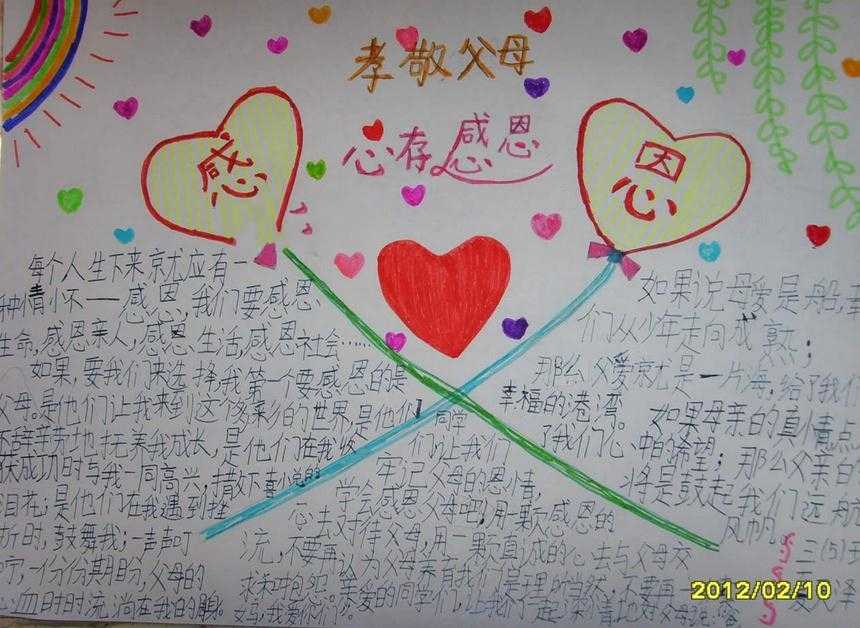 孝敬父母
心存感恩
感
恩
每个人生下来京尤应有一
种情怀——感恩,我们要感恩
生命,感恩亲人,感恩生活,感恩社会……
如果,要我们来选择,我第一个要感恩的是
父母。是他们让我来到这个多彩的世界,是他们
不辞辛劳地抚养我成长,是他们在我
获成功时与我一同高兴,
泪花;是他们在我遇到挫
折时,鼓舞我;一声声叮
一份份期盼,父母的
心血时时流淌在我的
同学
们让我们
牢记父母的恩情,
学会感恩父母吧!用一颗感恩的
心去对待父母,用一颗真诚的心去与父母交
流,不要再认为父母养育我们是理所当然,不要再
如果说母爱是船,
们从少年走向成熟;
那么父爱就是一片海,给了我们
幸福的港湾。
如果母亲的真情点
了我们心中的希望;那么父亲的
将是鼓起我们远航
风帆。
三(5)
2012/02/10